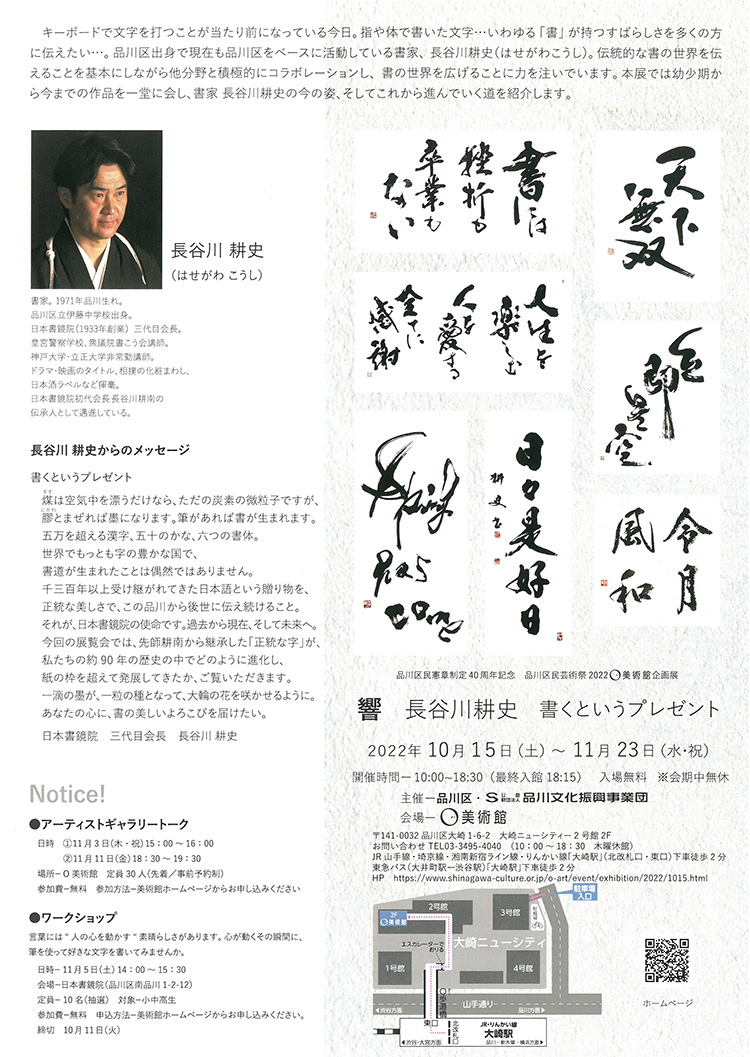 キーボードで文字を打つことが当たり前になっている今日。指や体で書いた文字…いわゆる「書」が持つすばらしさを多くの方
に伝えたい…。品川区出身で現在も品川区をベースに活動している書家、長谷川耕史(はせがわこうし)。伝統的な書の世界を伝
えることを基本にしながら他分野と積極的にコラボレーションし、書の世界を広げることに力を注いでいます。本展では幼少期か
ら今までの作品を一堂に会し、書家 長谷川耕史の今の姿、そしてこれから進んでいく道を紹介します。
長谷川 耕史
(はせがわ こうし)
書家。1971年品川生れ。
品川区立伊藤中学校出身。
日本書鏡院(1933年創業) 三代目会長。
皇宮警察学校、衆議院書こう会講師。
神戸大学・立正大学非常勤講師。
ドラマ・映画のタイトル、相撲の化粧まわし、
日本酒ラベルなど揮毫。
日本書鏡院初代会長長谷川耕南の
伝承人として邁進している。
長谷川 耕史からのメッセージ
書くというプレゼント
煤は空気中を漂うだけなら、ただの炭素の微粒子ですが、
膠とまぜれば墨になります。筆があれば書が生まれます。
五万を超える漢字、五十のかな、六つの書体。
世界でもっとも字の豊かな国で、
書道が生まれたことは偶然ではありません。
千三百年以上受け継がれてきた日本語という贈り物を、
正統な美しさで、この品川から後世に伝え続けること。
それが、日本書鏡院の使命です。過去から現在、そして未来へ。
今回の展覧会では、先師耕南から継承した「正統な字」が、
私たちの約90年の歴史の中でどのように進化し、
紙の枠を超えて発展してきたか、ご覧いただきます。
一滴の墨が、一粒の種となって、大輪の花を咲かせるように。
あなたの心に、書の美しいよろこびを届けたい。
日本書鏡院 三代目会長 長谷川 耕史
Notice!
●アーティストギャラリートーク
日時 ①11月3日(木・祝)15:00〜16:00
②11月11日(金)18:30〜19:30
場所ーO美術館 定員30人(先着/事前予約制)
参加費ー無料 参加方法ー美術館ホームページからお申し込みください
●ワークショップ
言葉には"人の心を動かす"素晴らしさがあります。心が動くその瞬間に、
筆を使って好きな文字を書いてみませんか。
日時ー11月5日(土)14:00〜15:30
会場ー日本書鏡院(品川区南品川1-2-12)
定員ー10名(抽選) 対象ー小中高生
参加費ー無料 申込方法ー美術館ホームページからお申し込みください。
締切 10月11日(火)
書には
挫折も
卒業も
ない
天下
無双
人生を
楽しむ
人を
愛する
全てに
感謝
色即是空
日々是好日
耕史書
令月
風和
品川区民憲章制定40周年記念 品川区民芸術祭2022 O美術館企画展
響 長谷川耕史 書くというプレゼント
2022年10月15日(土)〜11月23日(水・祝)
開催時間ー10:00~18:30(最終入館18:15) 入場無料 ※会期中無休
主催ー品川区・公益財団法人品川文化振興事業団
会場ーO美術館
〒141-0032 品川区大崎1-6-2 大崎ニューシティー2号館2F
お問い合わせTEL03-3495-4040 (10:00〜18:30 木曜休館)
JR山手線・埼京線・湘南新宿ライン線・りんかい線「大崎駅」(北改札口・東口)下車徒歩2分
東急バス(大井町駅ー渋谷駅)「大崎駅」下車徒歩2分
HP https://www.shinagawa-culture.or.jp/o-art/event/exhibition/2022/1015.html
駐車場
入口
2F
O美術館
2号館
3号館
駐輪場
エスカレーターで
おりる
大崎ニューシティ
1号館
4号館
歩道橋
山手通り
渋谷方面
品川方面
東口
北改札口
JR・りんかい線
大崎駅
渋谷・大宮方面
品川・新木場・横浜方面
ホームページ